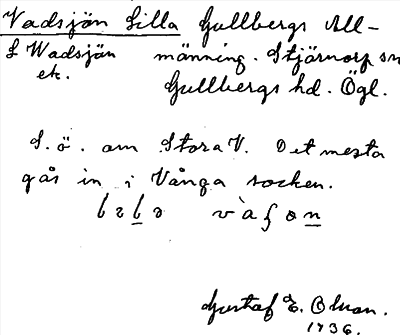 Vadsjön Lilla Gullbergs All-
L Wadsjön männing. Stjärnorp sn
ek. Gullbergs hd. Ögl.
S. ö. om Stora V. Det mesta
går in i Vånga socken.
Gustaf E. Olson.
1936.